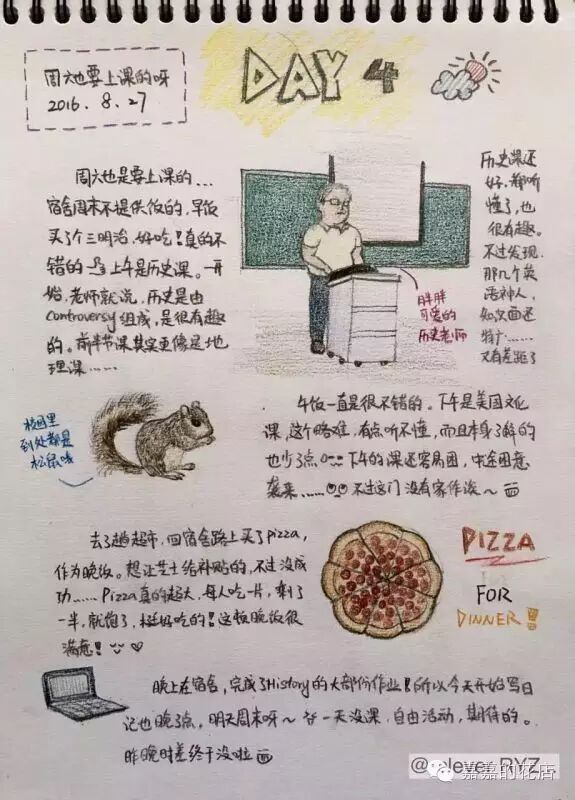 周六也要上课的呀
2016.8.27
DAY 4
周六也是要上课的...
宿舍周末不提供饭的,早饭
买了个三明治,好吃!真的不
错的~上午是历史课。一开
始,老师就说,历史是由
controversy组成,是很有趣
的。前半节课其实更像是地
理课......
历史课还
好,都听
懂了,也
很有趣。
不过发现,
那几个英
语神人,
知识面还
特广......
又有差距了
胖胖
可爱的
历史老师
校园里
到处都是
松鼠咯
午饭一直是很不错的。下午是美国文化
课,这个略难,有点听不懂,而且本身了解的
也少了点 下午的课还容易困,中途困意
袭来...... 不过这门没有家作诶~
去了趟超市,回宿舍路上买了pizza,
作为晚饭。想让芝士给补贴的,不过没成
功...... Pizza真的超大,每人吃一片,剩了
一半,就饱了,挺好吃的!这顿晚饭很
满意!
PIZZA
FOR
DINNER!!
晚上在宿舍,完成了History的大部份作业!所以今天开始写日
记也晚了点,明天周末呀~ 一天没课,自由活动,期待的。
昨晚时差终于没啦
@eleven_RYZ
嘉嘉的花店